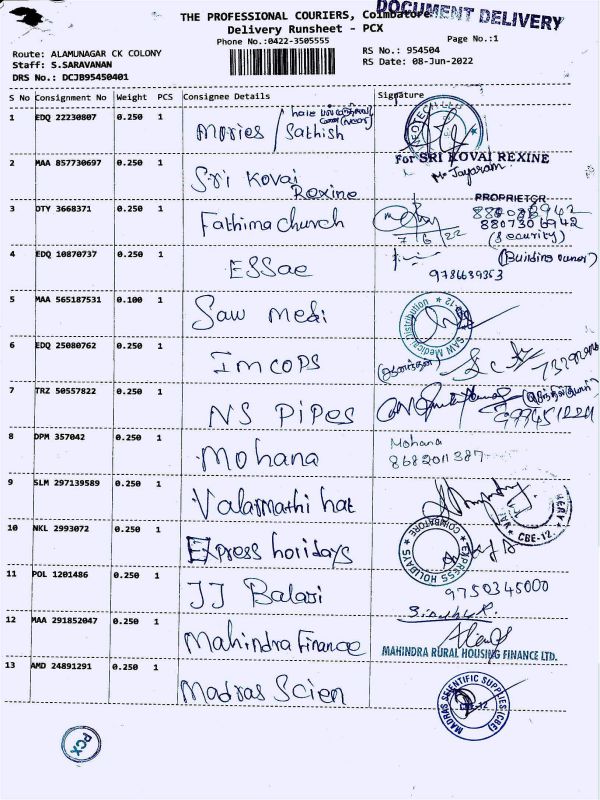 DOCUMENT DELIVERY
THE PROFESSIONAL COURIERS, Coimbatore
Delivery Runsheet - PCX
Phone No.:0422-3505555
Page No.:1
Route: ALAMUNAGAR CK COLONY
Staff: S.SARAVANAN
DRS No.: DCJB95450401
RS No.: 954504
RS Date: 08-Jun-2022
S No Consignment No Weight PCS Consignee Details Signature
1 EDQ 22230807 0.250 1 Mories / Sathish
2 MAA 857730697 0.250 1 Sri Kovai Rexine
For SRI KOVAI REXINE
Jayaram
PROPRIETOR
3 DTY 3668371 0.250 1 Fathima church
7/6/22
8807306942
(Security)
4 EDQ 10870737 0.250 1 ESSae
(Building owner)
9786639353
5 MAA 565187531 0.100 1 Saw medi
SAW Medical Distribution
6 EDQ 25080762 0.250 1 Imcops
7 TRZ 50557822 0.250 1 NS Pipes
8 DPM 357042 0.250 1 Mohana
Mohana
8682011387
9 SLM 297139589 0.250 1 Valarmathi hat
CBE-12.
10 NKL 2993072 0.250 1 Express horidays
EXPRESS HOLIDAYS COIMBATORE
11 POL 1201486 0.250 1 JJ Balaji
9750345000
12 MAA 291852047 0.250 1 Mahindra Finance
MAHINDRA RURAL HOUSING FINANCE LTD.
13 AMD 24891291 0.250 1 Madras Scien
MADRAS SCIENTIFIC SUPPLIES (CBE)
PCX